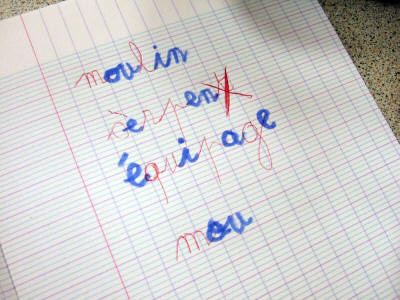 moulin
serpent
équipage
mou